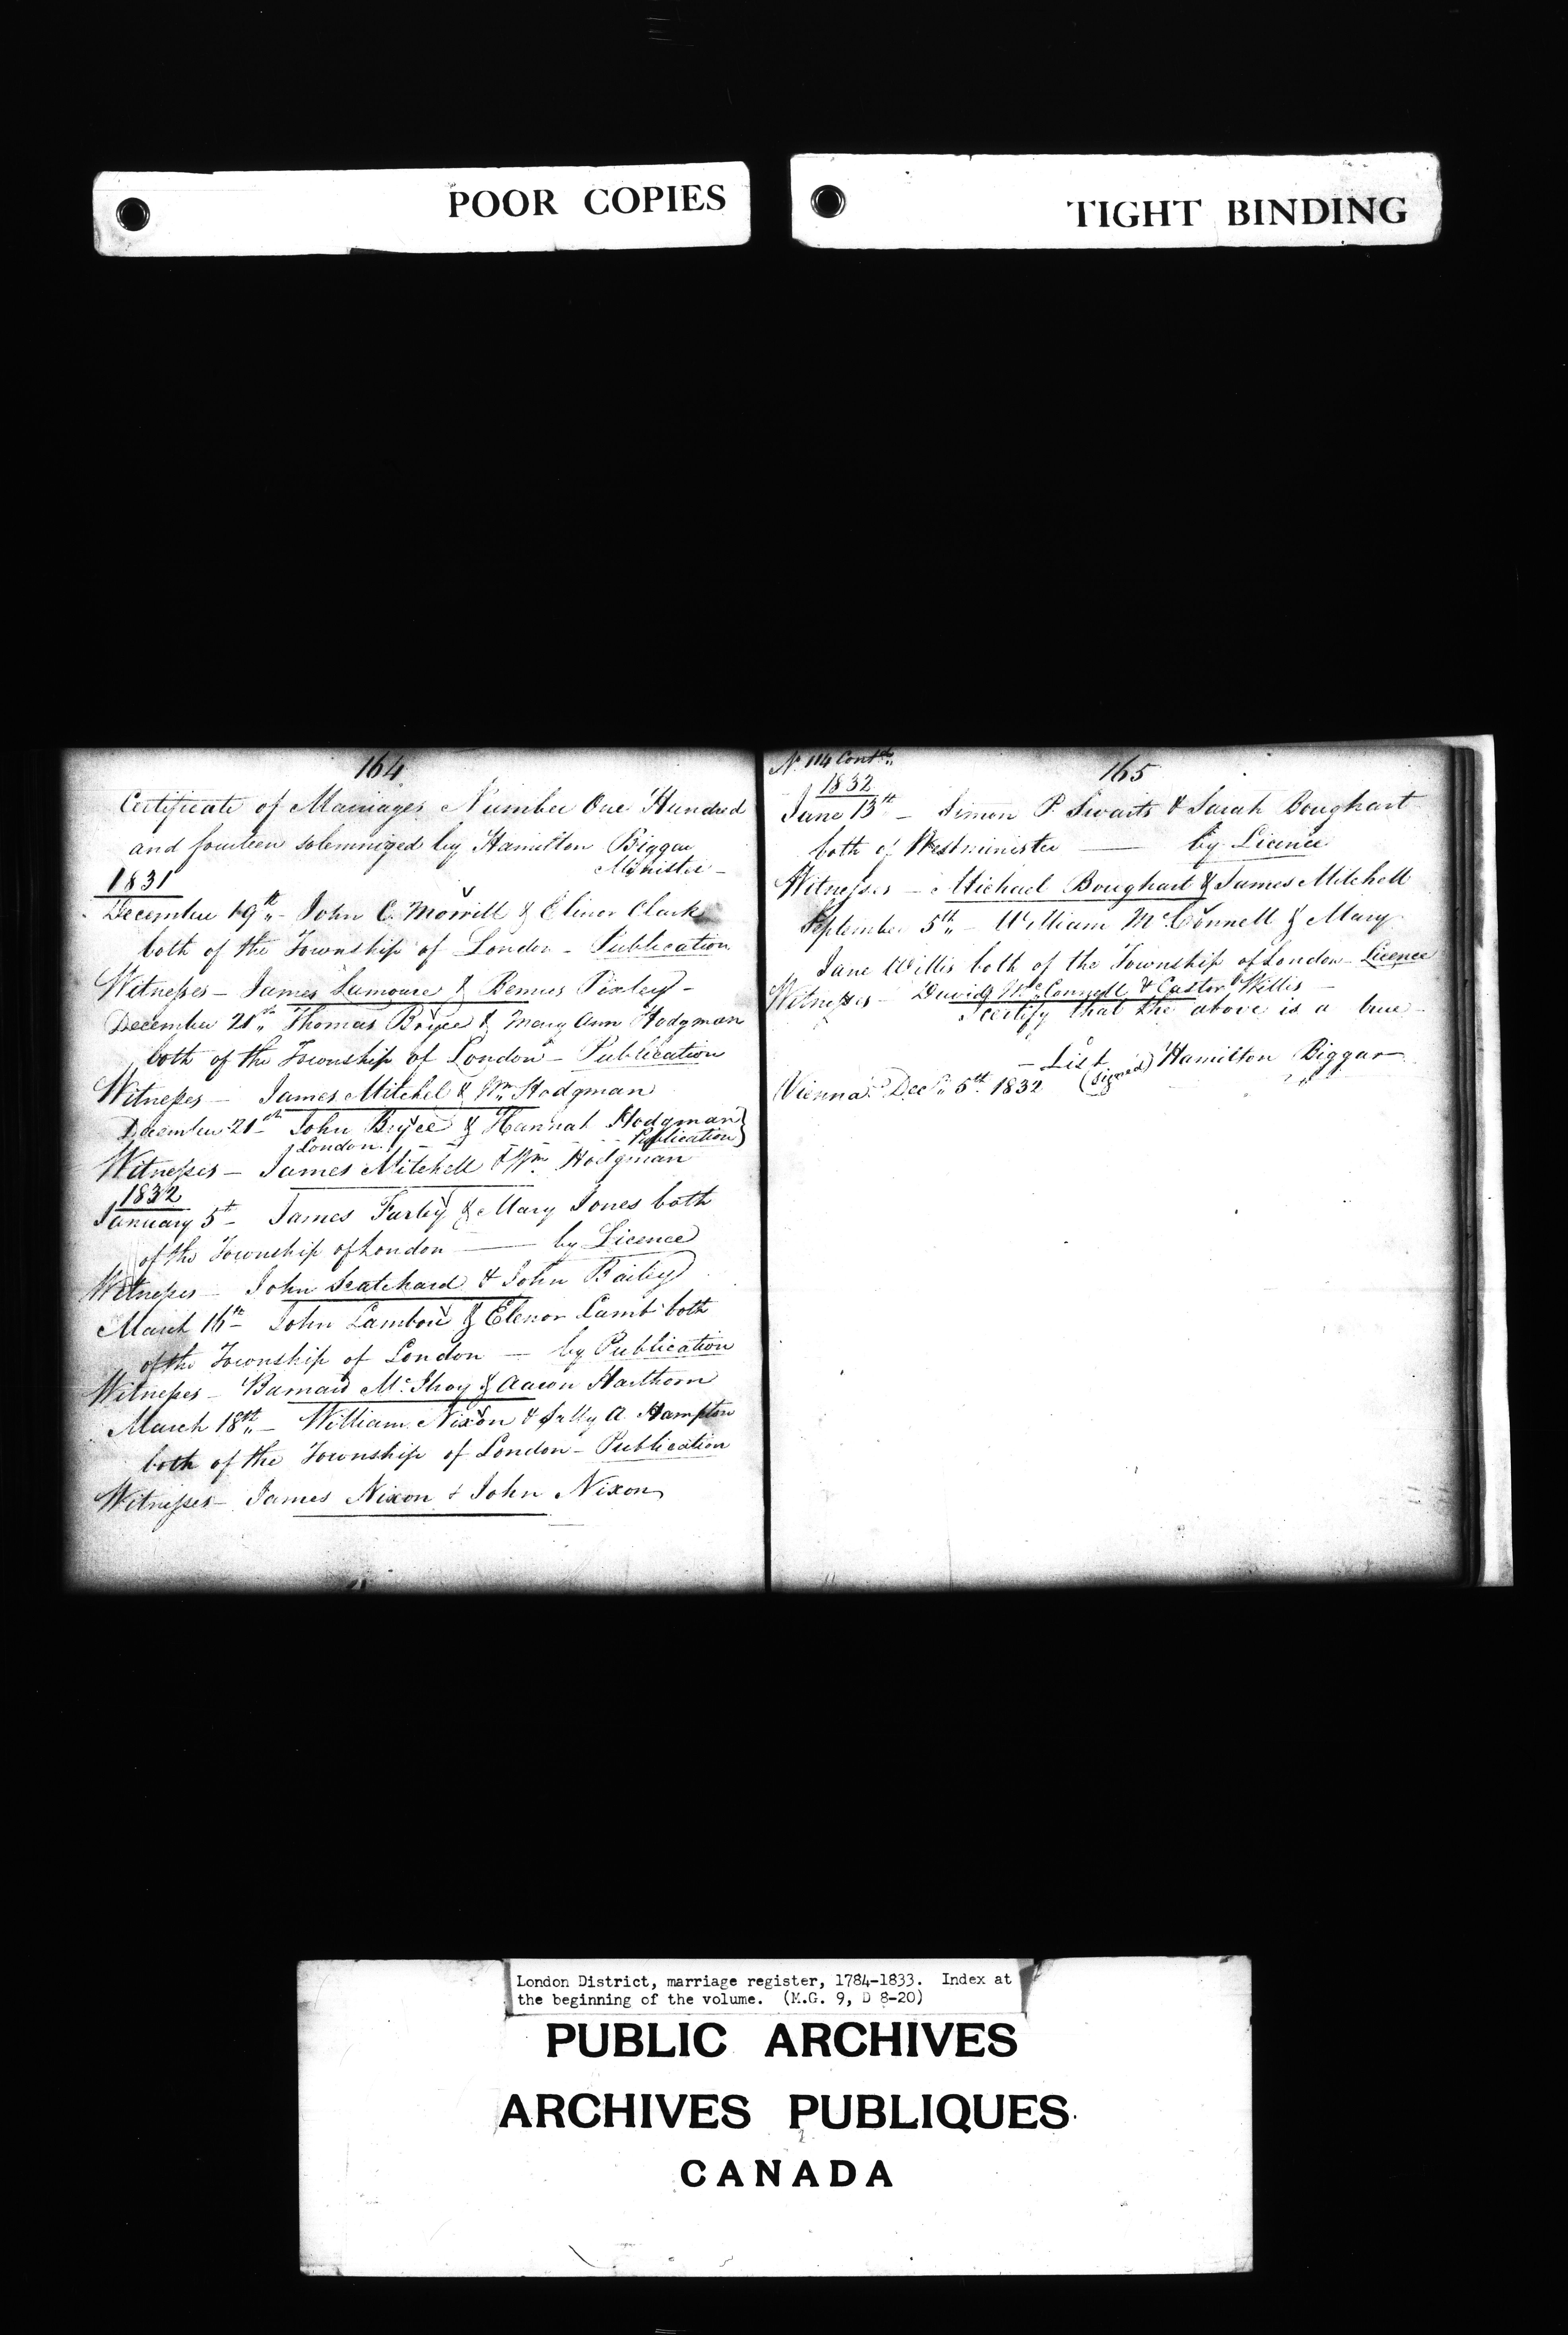 POOR COPIES
TIGHT BINDING
164
Certificate of Marriages Number One Hundred
and fourteen solemnized by Hamilton Biggar
Minister -
1831
December 19th - John C. Morrill & Elinor Clark
both of the Township of London - Publication
Witnesses - James Lamoure & Bemus Pixley -
December 21st Thomas Bryce & Mary Ann Hodgman
both of the Township of London - Publication
Witnesses - James Mitchel & Wm Hodgman
December 21st John Bryce & Hannah Hodgman
London - - - Publication
Witnesses - James Mitchell & Wm Hodgman
1832
January 5th - James Farley & Mary Jones both
of the Township of London — by Licence
Witnesses - John Scatchard & John Bailey
March 16th John Lambou & Elenor Lamb both
of the Township of London — by Publication
Witnesses - Barnard McIlhoy & Aaron Harthorn
March 18th - William Nixon & Sally A. Hampton
both of the Township of London - Publication
Witnesses - James Nixon & John Nixon
No 114 Contd
165
1832
June 13th - Simon P. Swarts & Sarah Boughart
both of Westminister — by Licence
Witnesses - Michael Boughart & James Mitchell
September 5th - William McConnell & Mary
Jane Willis both of the Township of London - Licence
Witnesses - David McConnell & Castor Willis -
I certify that the above is a true
- List
(Signed) Hamilton Biggar
Vienna Decr 5th 1832
London District, marriage register, 1784-1833. Index at
the beginning of the volume. (M.G. 9, D 8-20)
PUBLIC ARCHIVES
ARCHIVES PUBLIQUES
CANADA